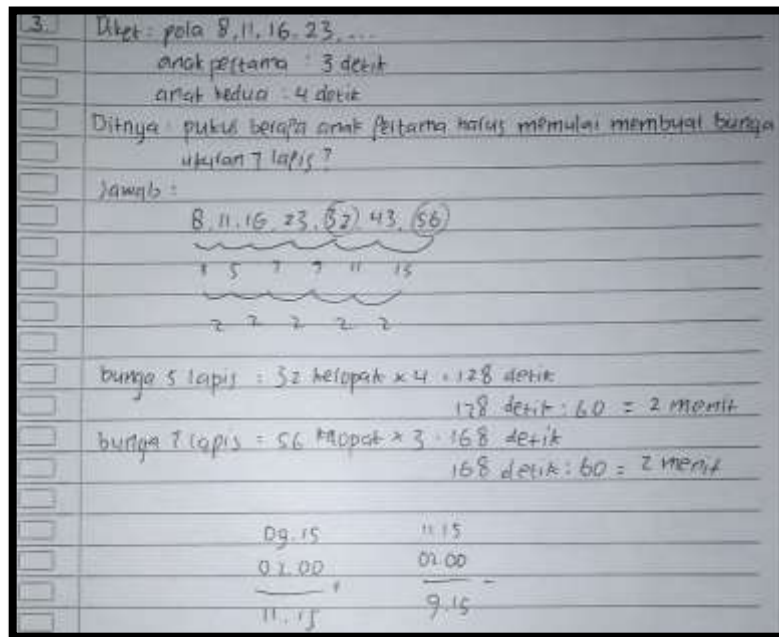 3. Diket : pola 8, 11, 16, 23, ...
anak pertama : 3 detik
anak kedua : 4 detik
Ditnya : pukul berapa anak pertama harus memulai membuat bunga
ukuran 7 lapis ?
Jawab :
8, 11, 16, 23, 32, 43, 56
3 5 7 9 11 13
2 2 2 2 2
bunga 5 lapis = 32 kelopak x 4 = 128 detik
128 detik : 60 = 2 menit
bunga 7 lapis = 56 klopak x 3 = 168 detik
168 detik : 60 = 2 menit
09.15 11.15
02.00 02.00
+ -
11.15 9.15